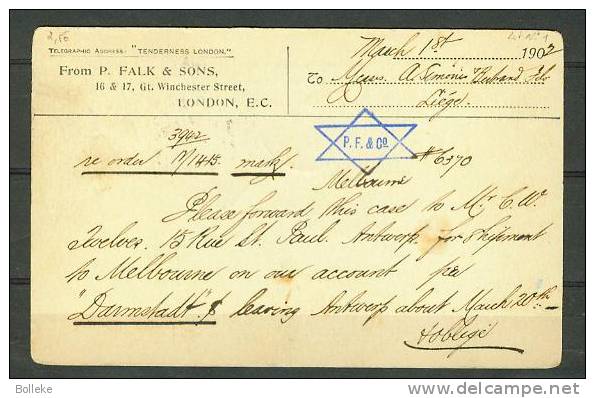 2,50
TELEGRAPHIC ADDRESS: "TENDERNESS LONDON."
From P. FALK & SONS,
16 & 17, Gt. Winchester Street,
LONDON, E.C.
March 1st 1902
To Messrs A. Simonis
Liége
3942
re order 11/1415 mark
P. F. & Co.
# 6370
Melbourne
Please forward this case to Mr C. W.
Twelves. 15 Rue St. Paul. Antwerp for shipment
to Melbourne on our account per
"Darmstadt" & leaving Antwerp about March 20th
& oblige
Bolleke
delcampe.net